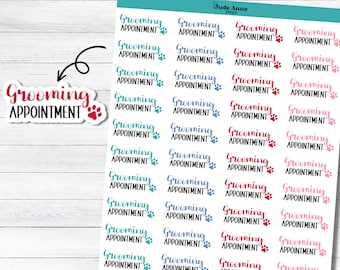 Grooming
APPOINTMENT
Grooming Grooming Grooming Grooming
APPOINTMENT APPOINTMENT APPOINTMENT APPOINTMENT
Grooming Grooming Grooming Grooming
APPOINTMENT APPOINTMENT APPOINTMENT APPOINTMENT
Grooming Grooming Grooming Grooming
APPOINTMENT APPOINTMENT APPOINTMENT APPOINTMENT
Grooming Grooming Grooming Grooming
APPOINTMENT APPOINTMENT APPOINTMENT APPOINTMENT
Grooming Grooming Grooming Grooming
APPOINTMENT APPOINTMENT APPOINTMENT APPOINTMENT
Grooming Grooming Grooming Grooming
APPOINTMENT APPOINTMENT APPOINTMENT APPOINTMENT
Grooming Grooming Grooming Grooming
APPOINTMENT APPOINTMENT APPOINTMENT APPOINTMENT
Grooming Grooming Grooming Grooming
APPOINTMENT APPOINTMENT APPOINTMENT APPOINTMENT
Grooming Grooming Grooming Grooming
APPOINTMENT APPOINTMENT APPOINTMENT APPOINTMENT
Grooming Grooming Grooming Grooming